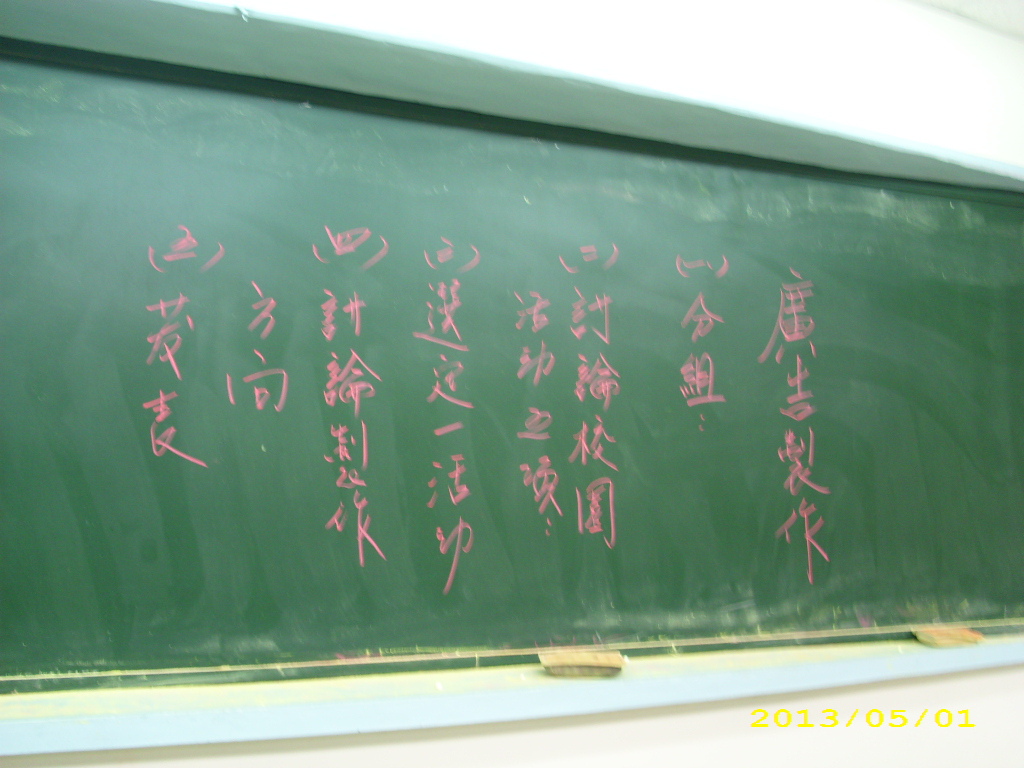 廣告製作
(一)分組:
(二)討論校園
活動五項:
(三)選定一活動
(四)討論製作
方向
(五)發表
2013/05/01